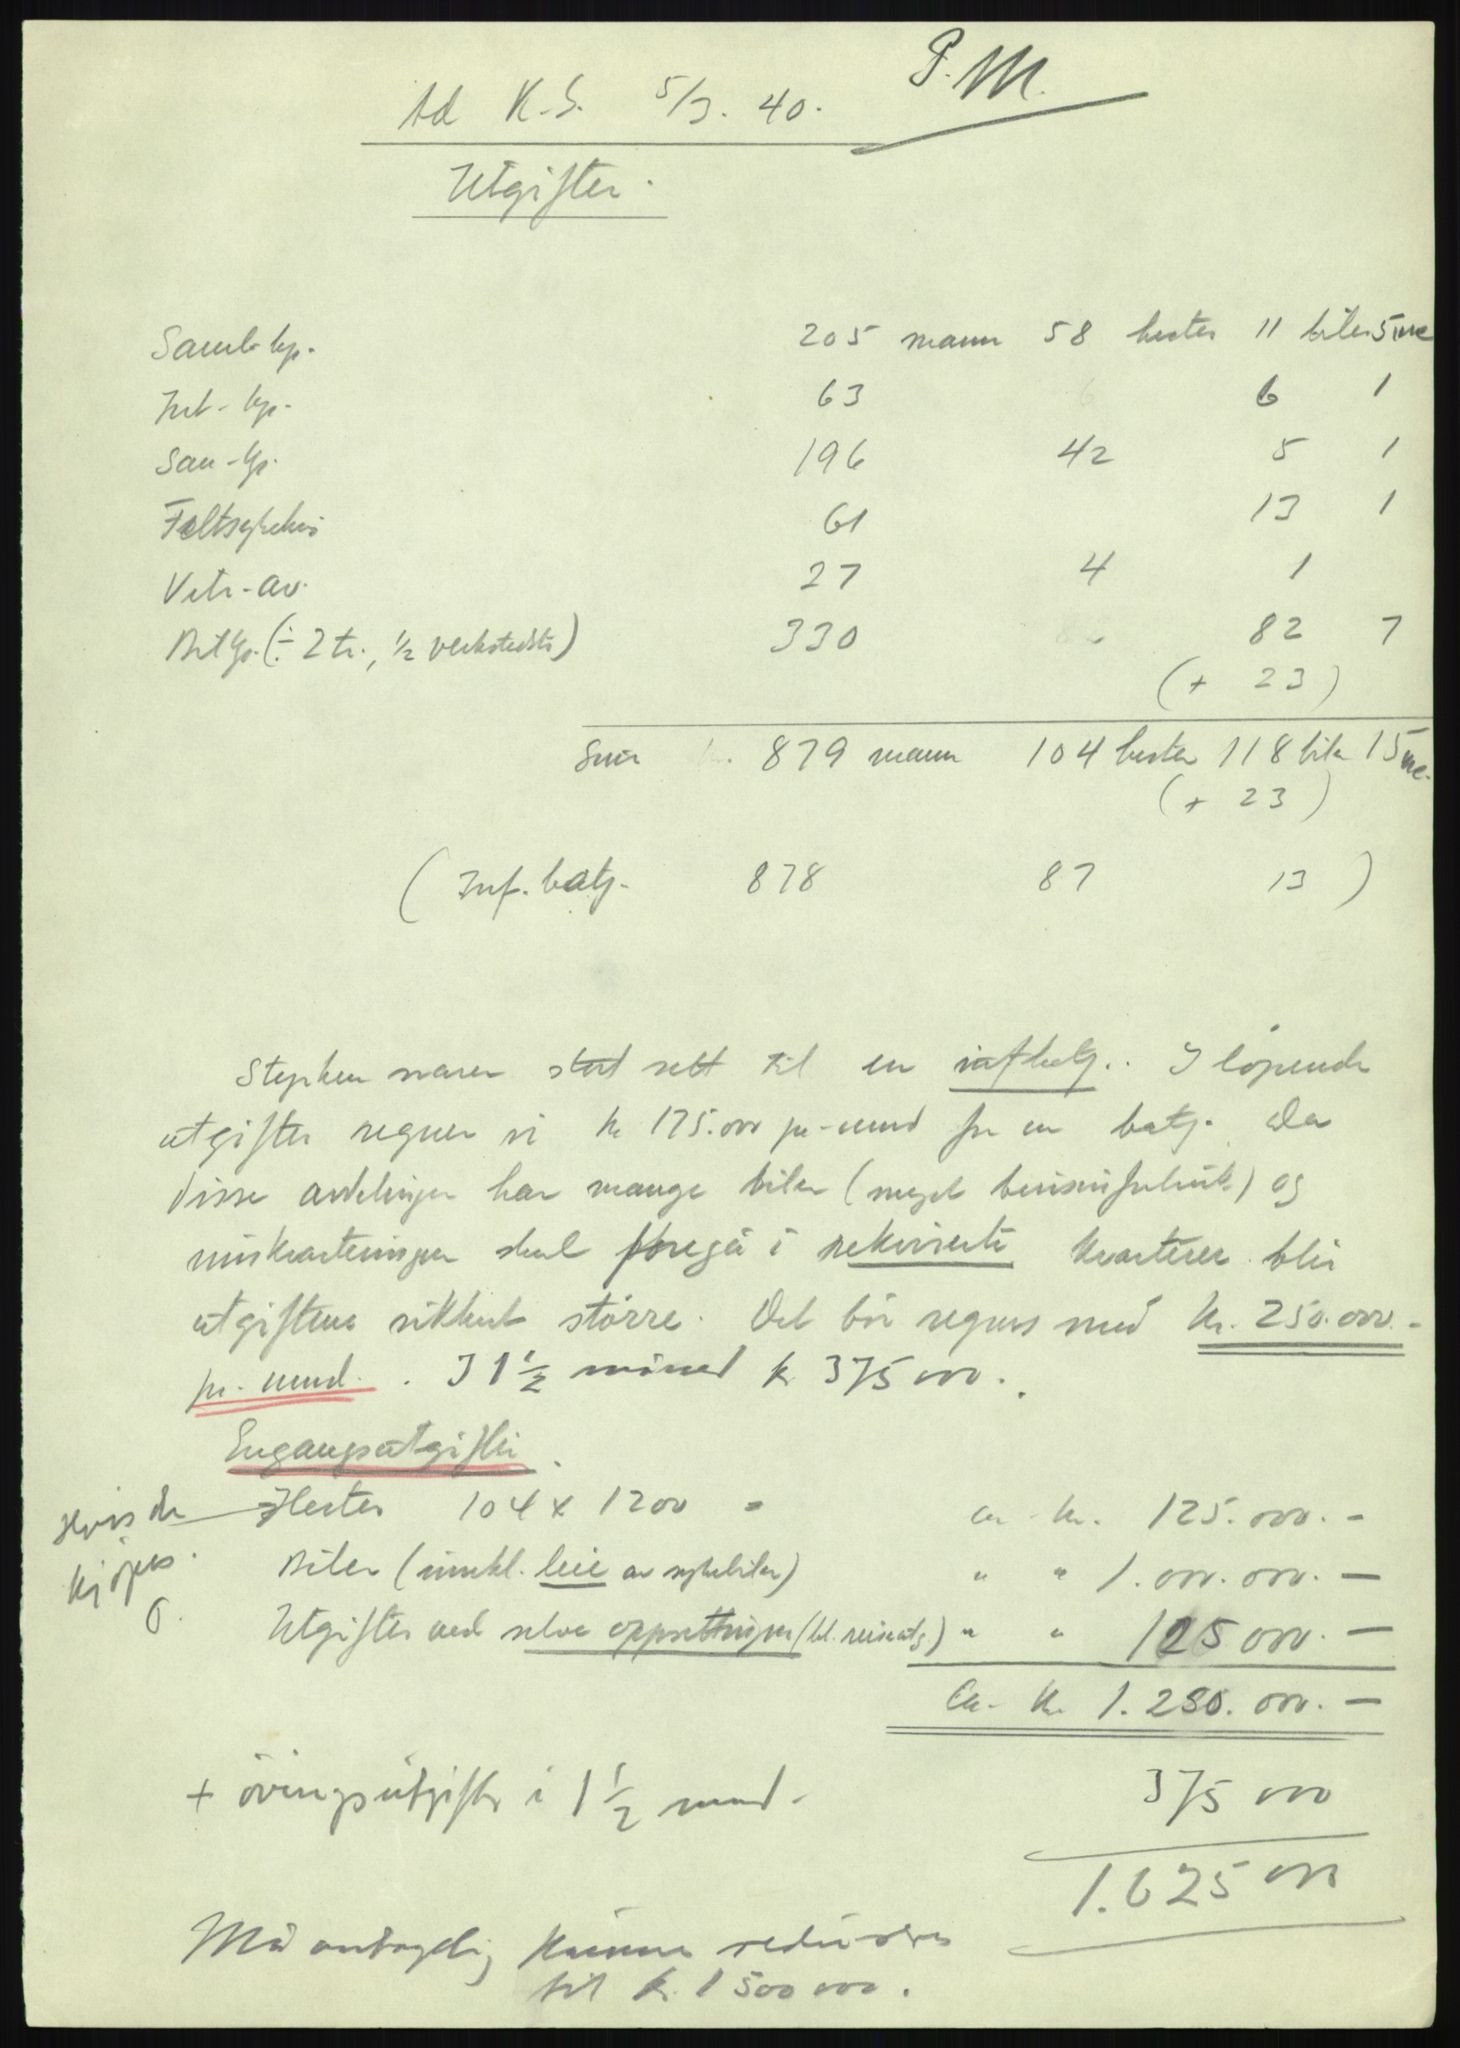 P.M.
Ad K.G. 5/3. 40.
Utgifter.
Samb kp. 205 mann 58 hester 11 biler 5 mc
Int-kp. 63 6 1
San-kp. 196 42 5 1
Feltsykehus 61 13 1
Vetr-av. 27 4 1
Bilkp. (÷ 2 tr., ½ verkstedstr) 330 82 7
(+ 23)
Sum 879 mann 104 hester 118 biler 15 mc.
(+ 23)
(Inf. batj. 878 87 13 )
Styrken svarer stort sett til en infbatj.. I löpende
utgifter regner vi kr 175.000 pr-mnd for en batj. Da
disse avdelinger har mange biler (meget bensinforbruk) og
innkvarteringen skal foregå i rekvirerte kvarterer blir
utgiftene sikkert större. Det bör regnes med kr. 250.000.-
pr. mnd. . I 1½ måned kr 375 000.
Engangsutgifter.
Hvis de kjöpes.
Hester 104 x 1200 = ca. kr. 125.000.-
Biler (innkl. leie av sykebiler) " " 1.000.000.-
Utgifter ved selve oppsetningen (bl. reiseutg) " " 125 000.-
Ca. kr. 1.250.000.-
+ övingsutgifter i 1½ mnd. 375 000
1.625 000
Må antagelig kunne reduseres
til kr. 1 500 000.